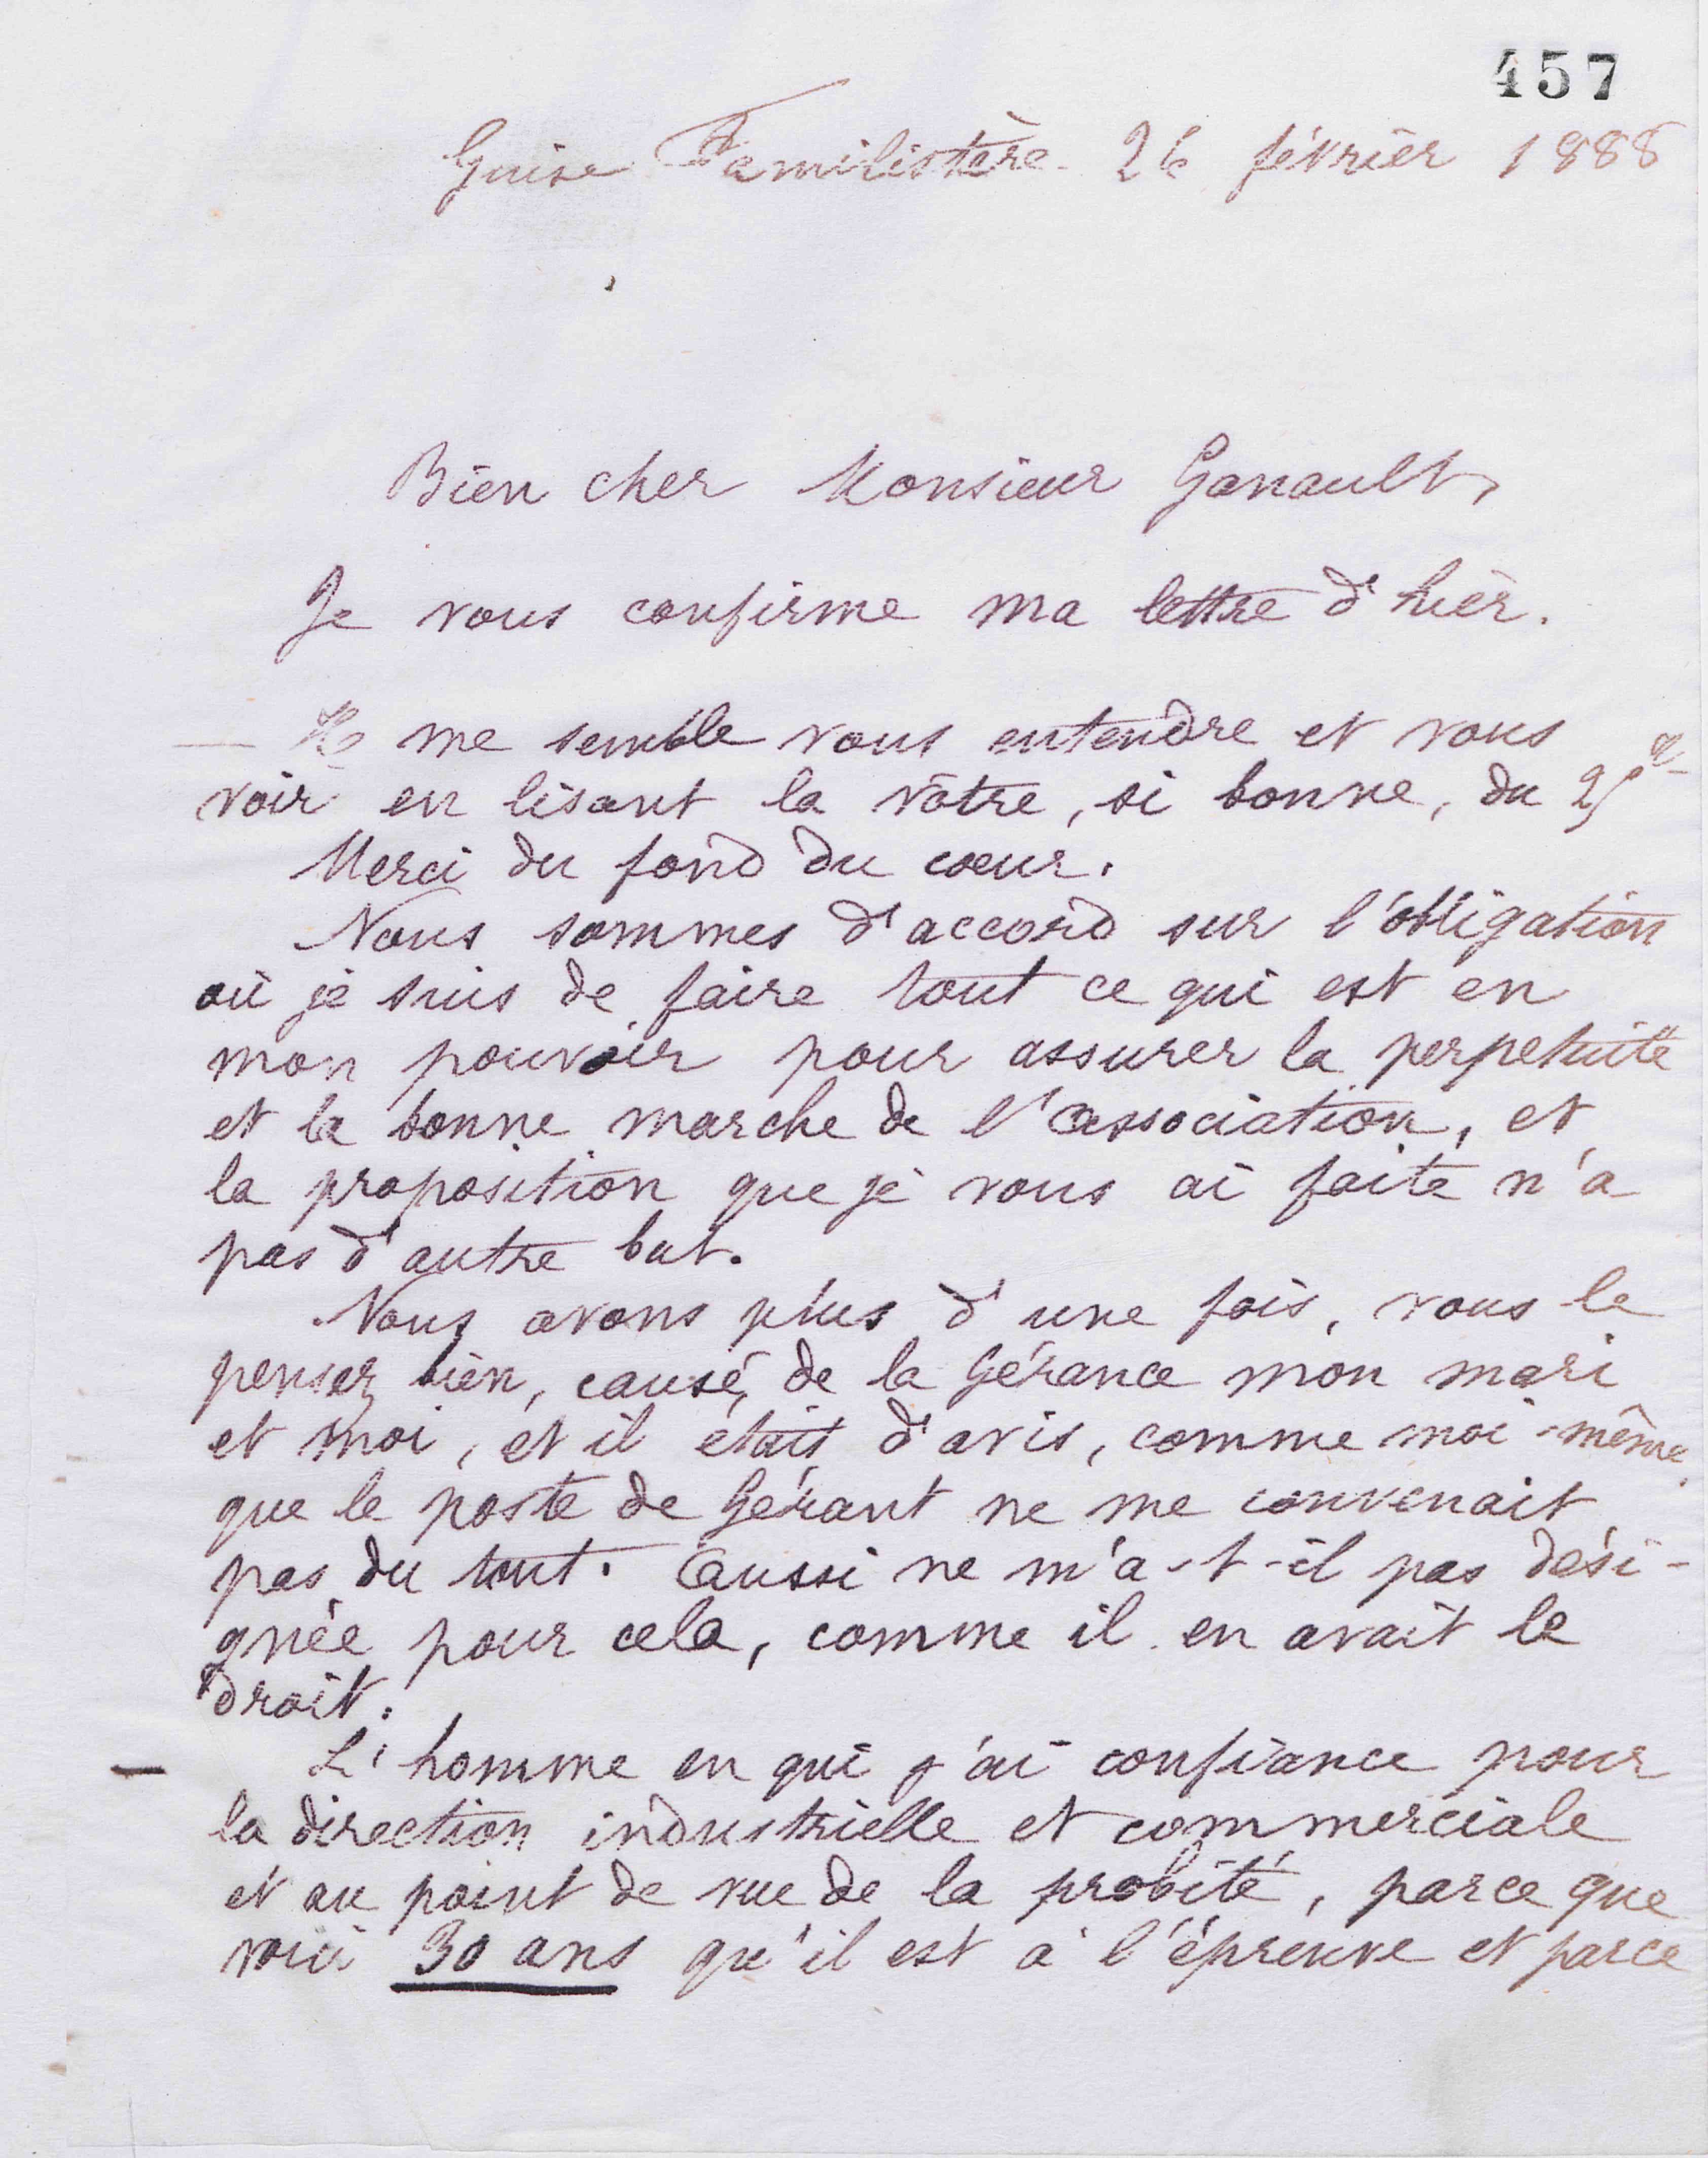 457
Guise Familistère 26 février 1888
Bien cher Monsieur Ganault,
Je vous confirme ma lettre d'hier.
— Il me semble vous entendre et vous
voir en lisant la vôtre, si bonne, du 25 ct
Merci du fond du cœur.
Nous sommes d'accord sur l'obligation
où je suis de faire tout ce qui est en
mon pouvoir pour assurer la perpetuité
et la bonne marche de l'association, et
la proposition que je vous ai faite n'a
pas d'autre but.
Nous avons plus d'une fois, vous le
pensez bien, causé, de la Gérance mon mari
et moi, et il était d'avis, comme moi-même,
que le poste de Gérant ne me convenait
pas du tout. Aussi ne m'a-t-il pas dési-
gnée pour cela, comme il en avait le
droit.
— L'homme en qui j'ai confiance pour
la direction industrielle et commerciale
et au point de vue de la probité, parce que
voici 30 ans qu'il est à l'épreuve et parce